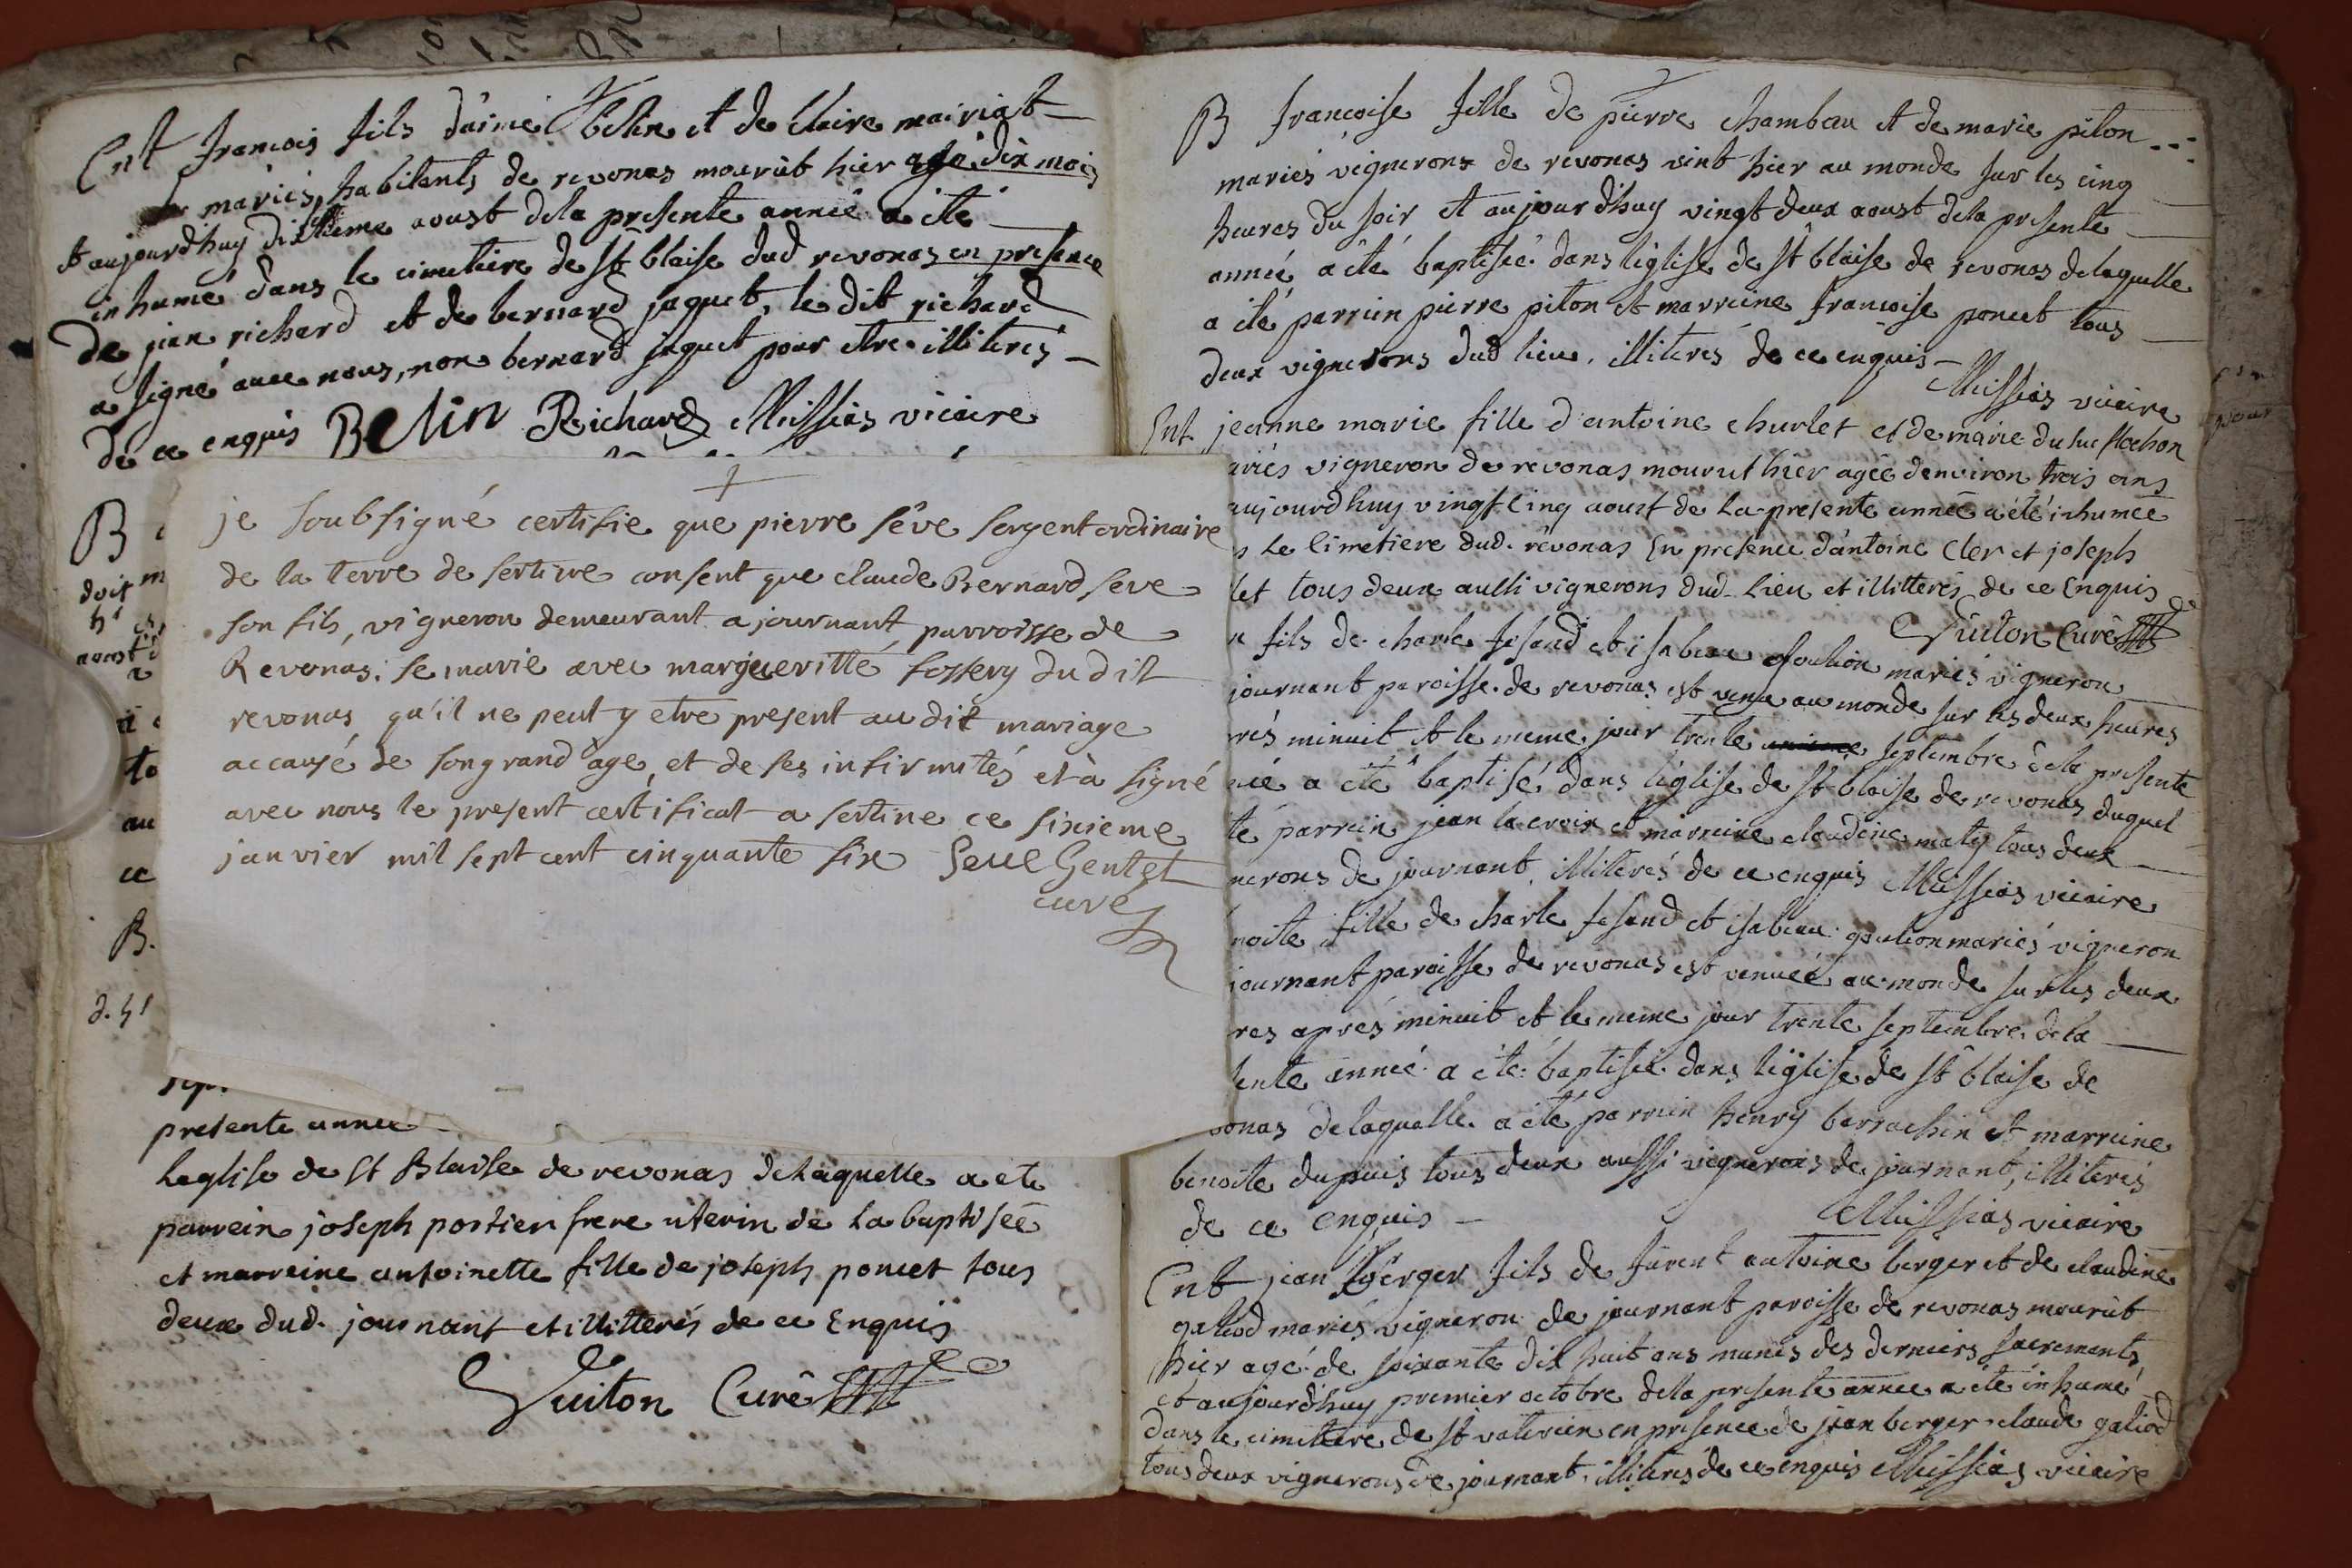 Ent françois fils d'aimé belin et de claire mairiat
mariés, habitants de revonas mourut hier agé dix mois
et aujourdhuy dixieme aoust dela presente année a ete
inhumé dans le cimetiere de st blaise dud revonas en presence
de jean richard et de bernard jaquet, le dit richard
a signé avec nous, non bernard jaquet pour etre illiterés
de ce enquis Belin Richard Missias vicaire
B
doit m
aoust d
to
au
ce
B.
je soubsigné certifie que pierre sêve sergent ordinaire
de la terre de sertine consent que claude Bernard seve
son fils, vigneron demeurant a journant parroisse de
Revonas. se marie avec margueritte fossery du dit
revonas qu'il ne peut y etre present au dit mariage
accausé de son grand age, et de ses infirmités et à signé
avec nous le present certificat a sertine ce sixieme
janvier mil sept cent cinquante six Seve Gentet
curé
presente année
leglise de st Blaise de revonas delaquelle a ete
parrein joseph portier frere uterin de la baptisée
et marreine antoinette fille de joseph poncet tous
deux dud. journant et illitterés de ce Enquis
Guiton Curé
B françoise fille de pierre chambau et de marie piton
mariés vignerons de revonas vint hier au monde sur les cinq
heures du soir et aujourdhuy vingt deux aoust dela presente
année a été baptisée dans l'église de st blaise de revonas delaquelle
a été parrein pierre piton et marreine françoise poncet tous
deux vignerons dud lieu. illiterés de ce enquis
Missias vicaire
Ent. jeanne marie fille d'antoine churlet et de marie du suc flochon
ariés vigneron de revonas mourut hier agée denviron trois ans
aujourdhuy vingt cinq aoust de la presente année a été inhumée
s le cimetiere dud. revonas En presence d'antoine Cler et joseph
let tous deux aussi vignerons dud. Lieu et illitterés de ce Enquis
Guiton Curé
fils de charle fesand et isabeau goution mariés vigneron
journant paroisse de revonas est venu au monde sur les deux heures
rés minuit et le meme jour trente septembre dela presente
née a été baptisé dans l'église de st blaise de revonas duquel
té parrein jean lacroix et marreine claudine maty tous deux
nerons de journant. illiterés de ce enquis Missias vicaire
noite fille de charle fesand et isabeau goution mariés vigneron
journant paroisse de revonas est venuée au monde sur les deux
res aprés minuit et le meme jour trente septembre dela
sente année a été baptisée dans l'église de st blaise de
onas delaquelle a été parrein henry barrachin et marreine
benoite dupuis tous deux aussi vignerons de journant, illiterés
de ce enquis Missias vicaire
Ent jean berger fils de furent antoine berger et de claudine
galiod mariés vigneron de journant paroisse de revonas mourut
hier agé de soixante dix huit ans munis des derniers sacrements
et aujourdhuy premier octobre dela presente année a été inhumé
dans le cimetiere de st valerien en presence de jean berger claude galiod
tous deux vignerons de journant. illiterés de ce enquis Missias vicaire